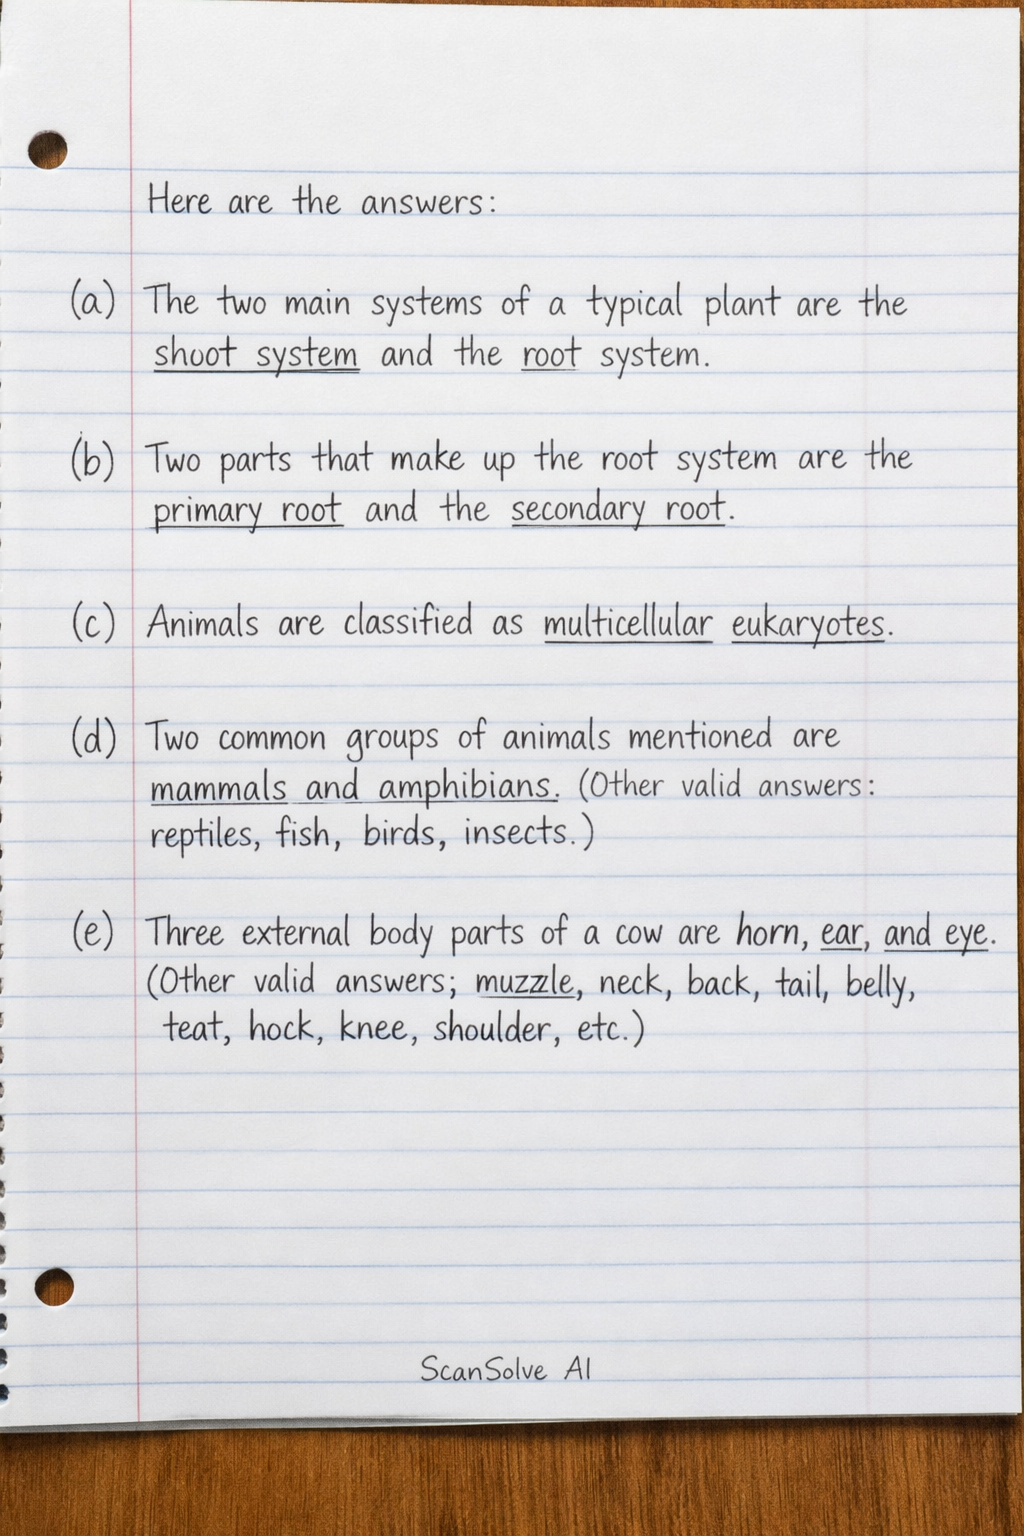 Here are the answers:
(a) The two main systems of a typical plant are the
shoot system and the root system.
(b) Two parts that make up the root system are the
primary root and the secondary root.
(c) Animals are classified as multicellular eukaryotes.
(d) Two common groups of animals mentioned are
mammals and amphibians. (Other valid answers:
reptiles, fish, birds, insects.)
(e) Three external body parts of a cow are horn, ear, and eye.
(Other valid answers; muzzle, neck, back, tail, belly,
teat, hock, knee, shoulder, etc.)
ScanSolve AI